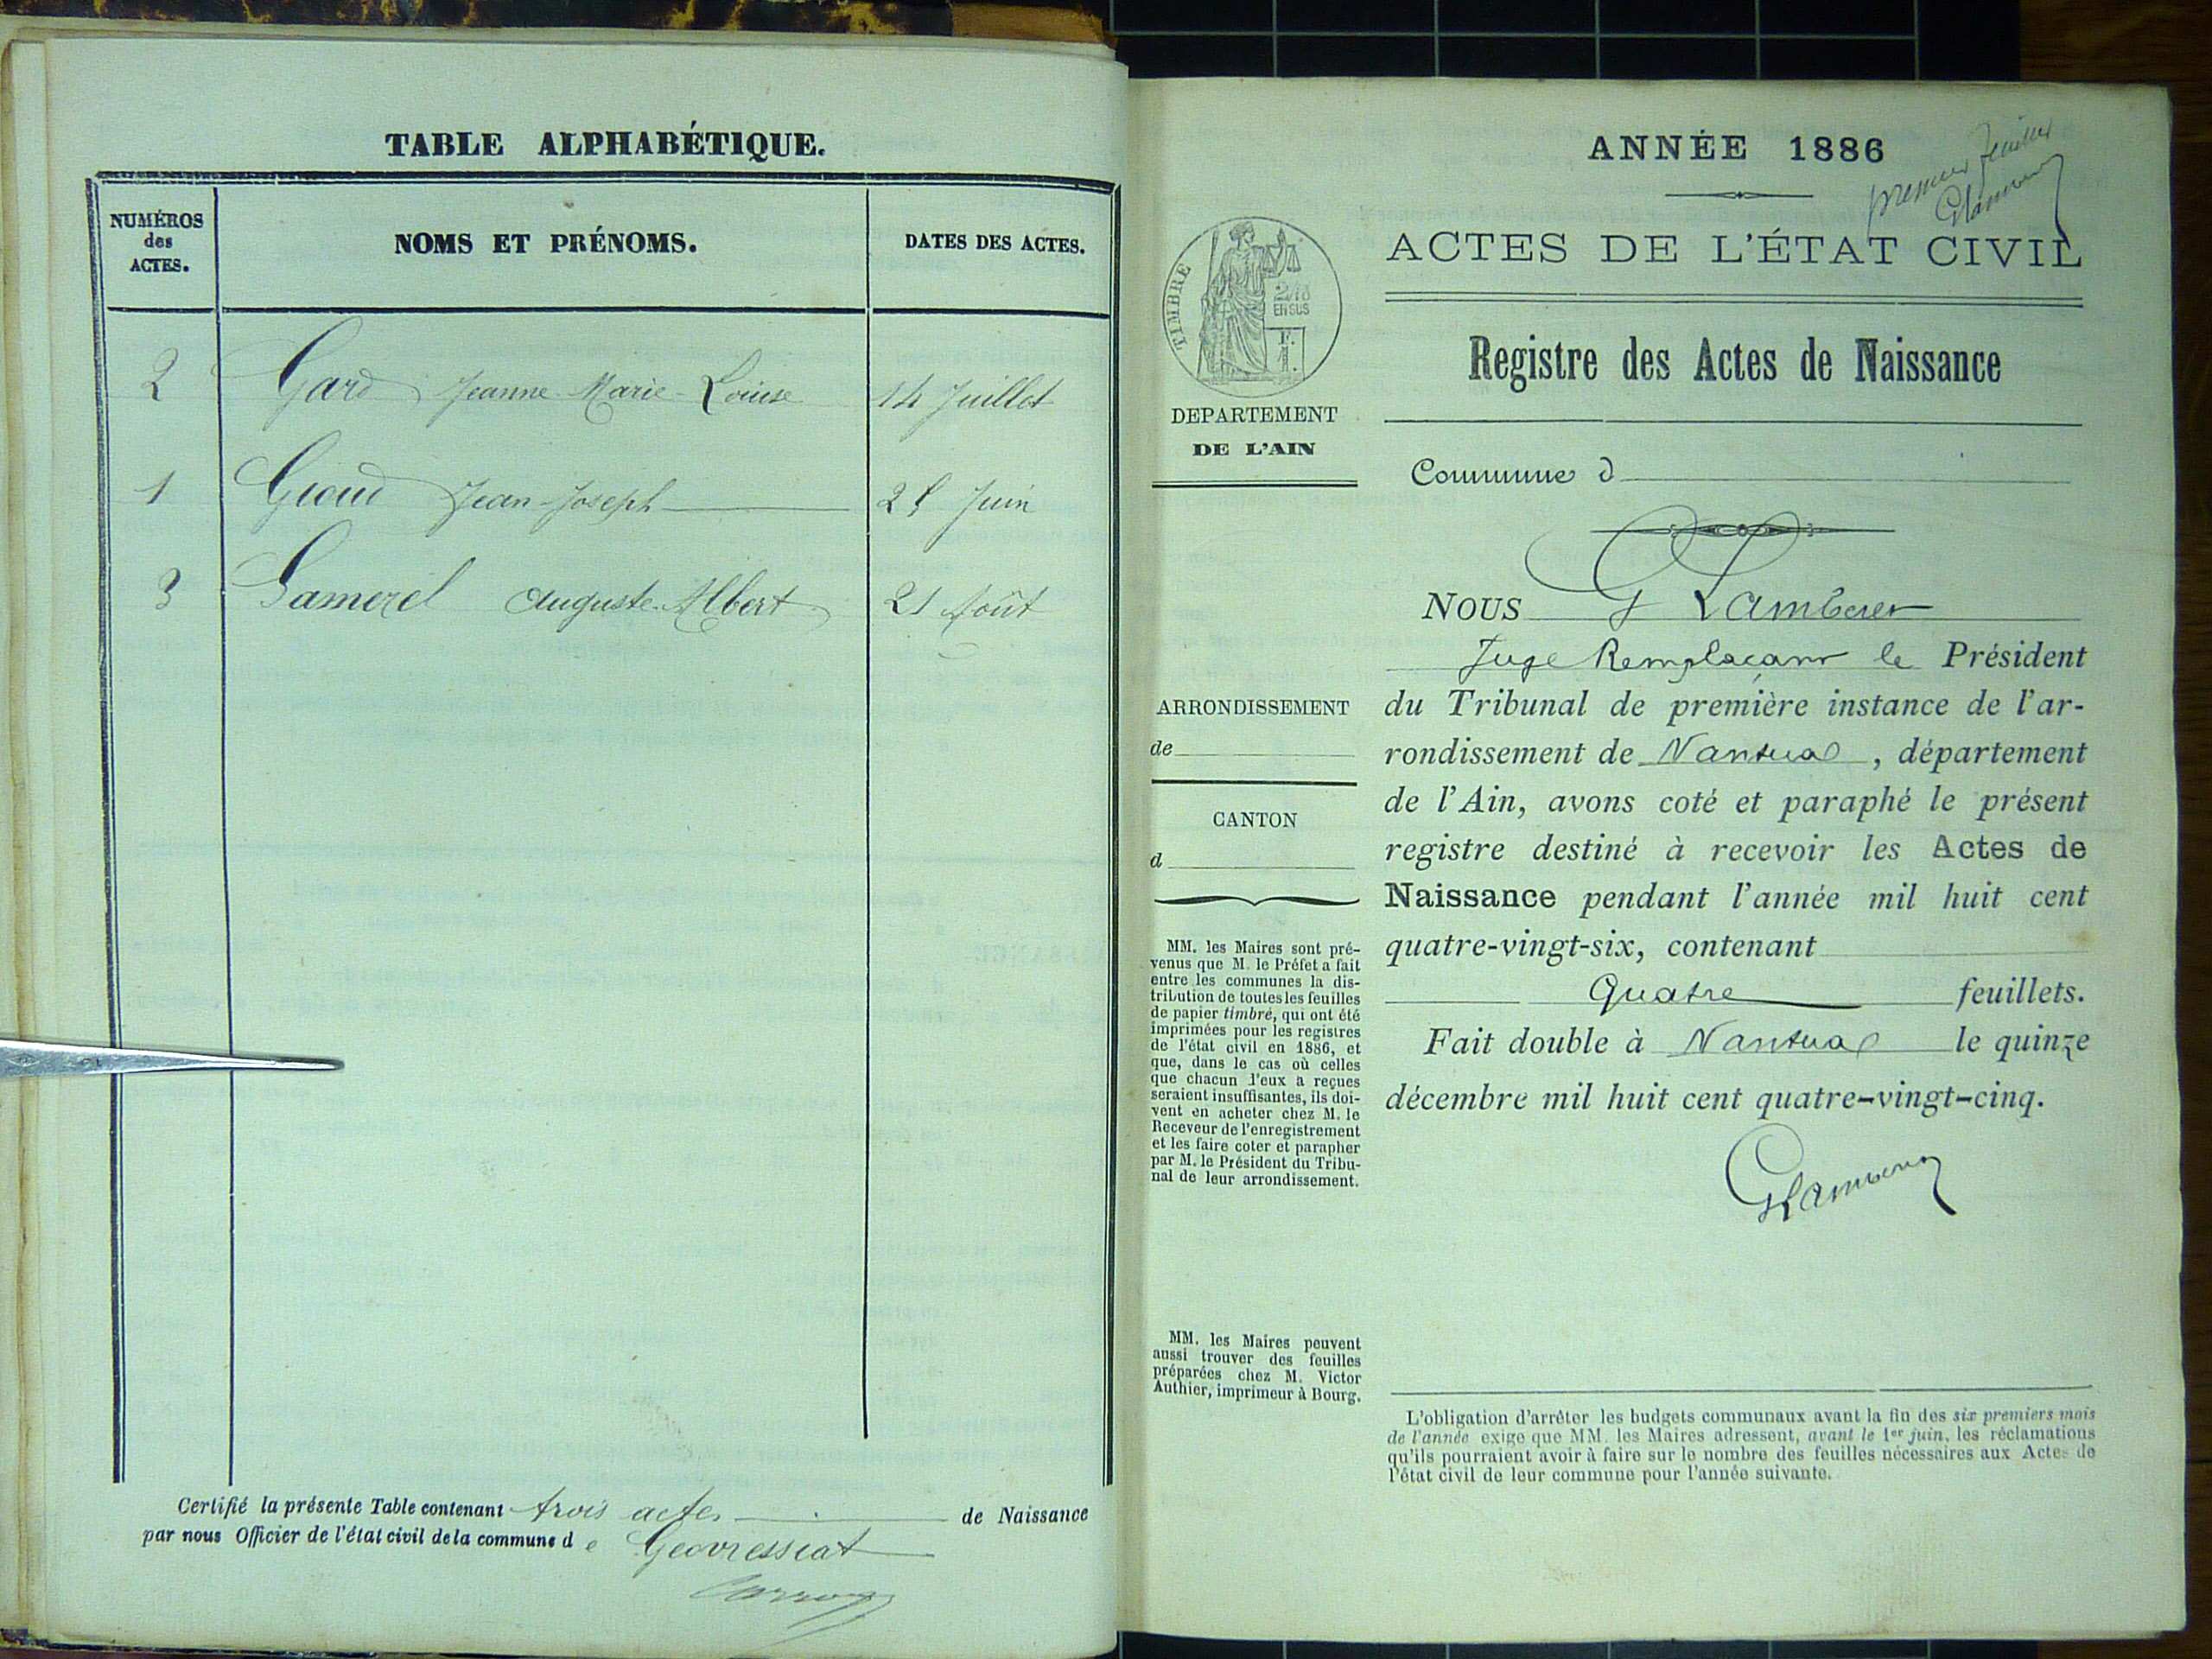 TABLE ALPHABÉTIQUE.
NUMÉROS
des
ACTES.
NOMS ET PRÉNOMS.
DATES DES ACTES.
2 Gard Jeanne-Marie-Louise 14 Juillet
1 Jean-Joseph Juin
3 Auguste-Albert 21 Août
Certifié la présente Table contenant trois actes de Naissance
par nous Officier de l'état civil de la commune de Geovressiat
ANNÉE 1886
premier feuillet
TIMBRE
DEPARTEMENT
DE L'AIN
ARRONDISSEMENT
de
CANTON
d
MM. les Maires sont pré-
venus que M. le Préfet a fait
entre les communes la dis-
tribution de toutes les feuilles
de papier timbré, qui ont été
imprimées pour les registres
de l'état civil en 1886, et
que, dans le cas où celles
que chacun d'eux a reçues
seraient insuffisantes, ils doi-
vent en acheter chez M. le
Receveur de l'enregistrement
et les faire coter et parapher
par M. le Président du Tribu-
nal de leur arrondissement.
MM. les Maires peuvent
aussi trouver des feuilles
préparées chez M. Victor
Authier, imprimeur à Bourg.
ACTES DE L'ÉTAT CIVIL
Registre des Actes de Naissance
Commune d
NOUS G Lamberet
Juge Remplaçant le Président
du Tribunal de première instance de l'ar-
rondissement de Nantua, département
de l'Ain, avons coté et paraphé le présent
registre destiné à recevoir les Actes de
Naissance pendant l'année mil huit cent
quatre-vingt-six, contenant
Quatre feuillets.
Fait double à Nantua le quinze
décembre mil huit cent quatre-vingt-cinq.
L'obligation d'arrêter les budgets communaux avant la fin des six premiers mois
de l'année exige que MM. les Maires adressent, avant le 1er juin, les réclamations
qu'ils pourraient avoir à faire sur le nombre des feuilles nécessaires aux Actes de
l'état civil de leur commune pour l'année suivante.